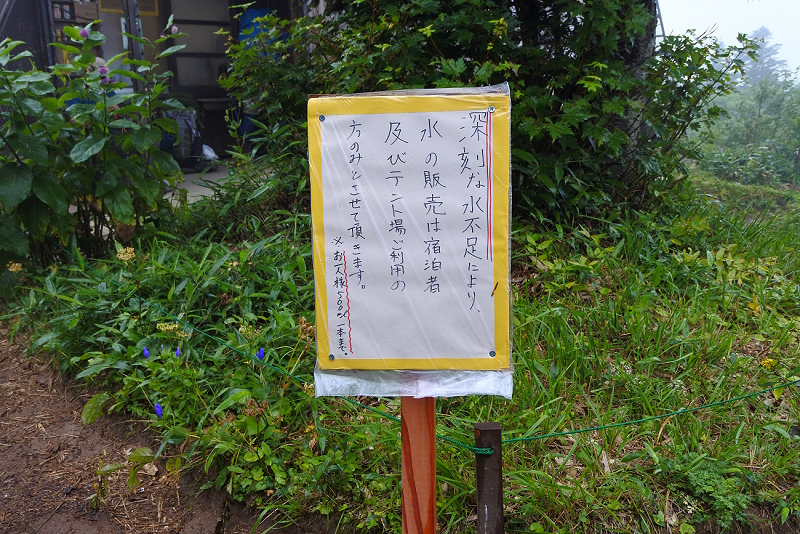 深刻な水不足により、
水の販売は宿泊者
及びテント場ご利用の
方のみとさせて頂きます。
※お一人様500ml一本まで。